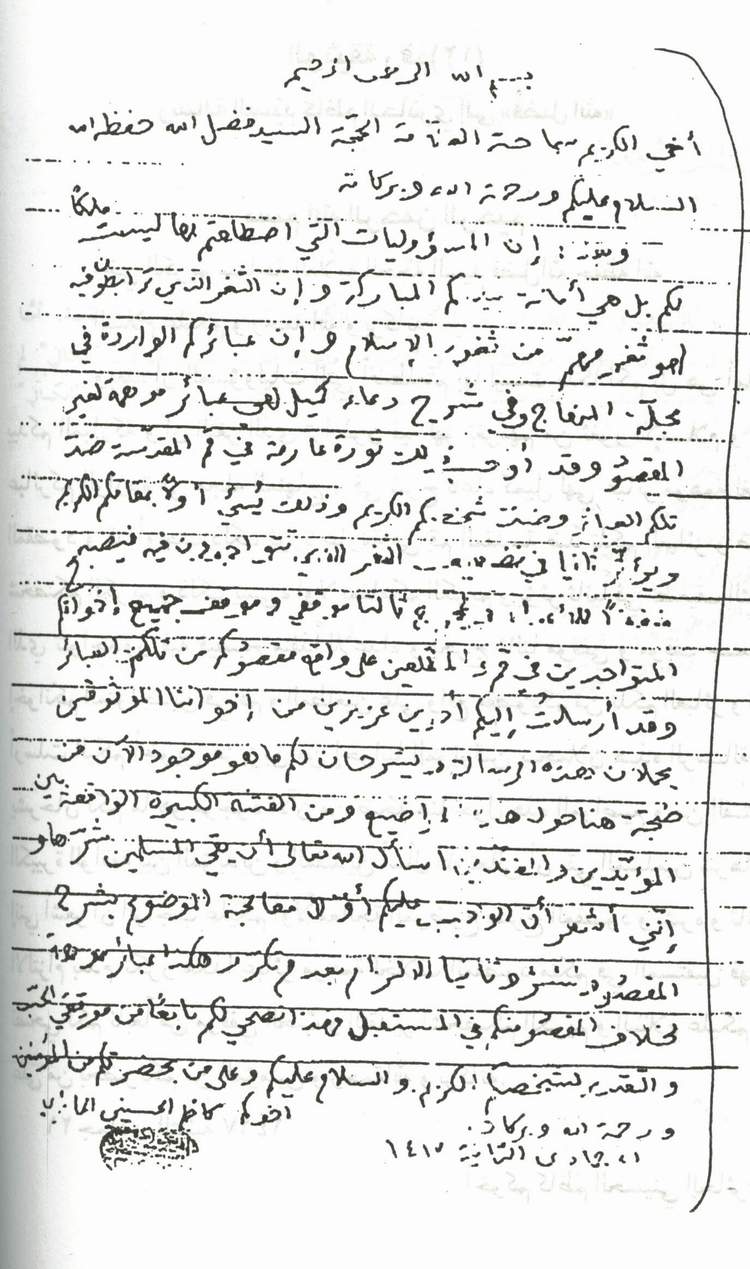 بسم الله الرحمن الرحيم
أخي الكريم سماحة العلامة الحجة السيد فضل الله حفظه الله
السلام عليكم ورحمة الله وبركاته
وبعد: إن المسؤوليات التي اضطلعتم بها ليست ملكاً
لكم بل هي أمانة بيدكم المباركة وإن الثغر الذي ترابطون فيه
لهو ثغر مهمّ من ثغور الإسلام وإن عبائركم الواردة في
مجلة المنهاج وفي شرح دعاء كميل لهي عبائر موهمة لغير
المقصود وقد أوجبت ثورة عارمة في قم المقدّسة ضدّ
تلكم العبائر وضدّ شخصكم الكريم وذلك يُسيء أولاً بمقامكم الكريم
ويؤثّر ثانياً في الثغر الذي تتواجدون فيه فيصبح
ثالثاً موقفي وموقف جميع إخوانكم
المتواجدين في قم المطّلعين على واقع مقصودكم من تلكم العبائر
وقد أرسلت إليكم أخوين عزيزين من إخواننا الموثوقين
يحملان هذه الرسالة ويشرحان لكم ما هو موجود الآن من
ضجة هنا حول هذه المواضيع ومن الفتنة الكبيرة الواقعة بين
المؤيّدين والمفنّدين أسأل الله تعالى أن يقي المسلمين شرّها و
إنّني أشعر أنّ الواجب عليكم أولاً معالجة الموضوع بشرح
المقصود وثانياً الالتزام بعدم تكرار هكذا عبائر موهمة
لخلاف المقصود منكم في المستقبل فهذا نصحي لكم نابعاً من موقفي الحبّ
والتقدير لشخصكم الكريم والسلام عليكم وعلى من بحضرتكم من المؤمنين
ورحمة الله وبركاته. أخوكم كاظم الحسيني الحائري
جمادى الثانية ١٤١٧